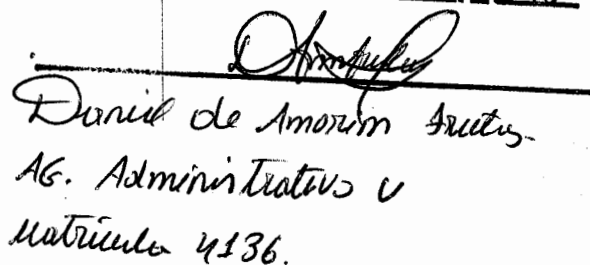 Daniel de Amorim Freitas
AG. Administrativo V
Matrícula 4136.